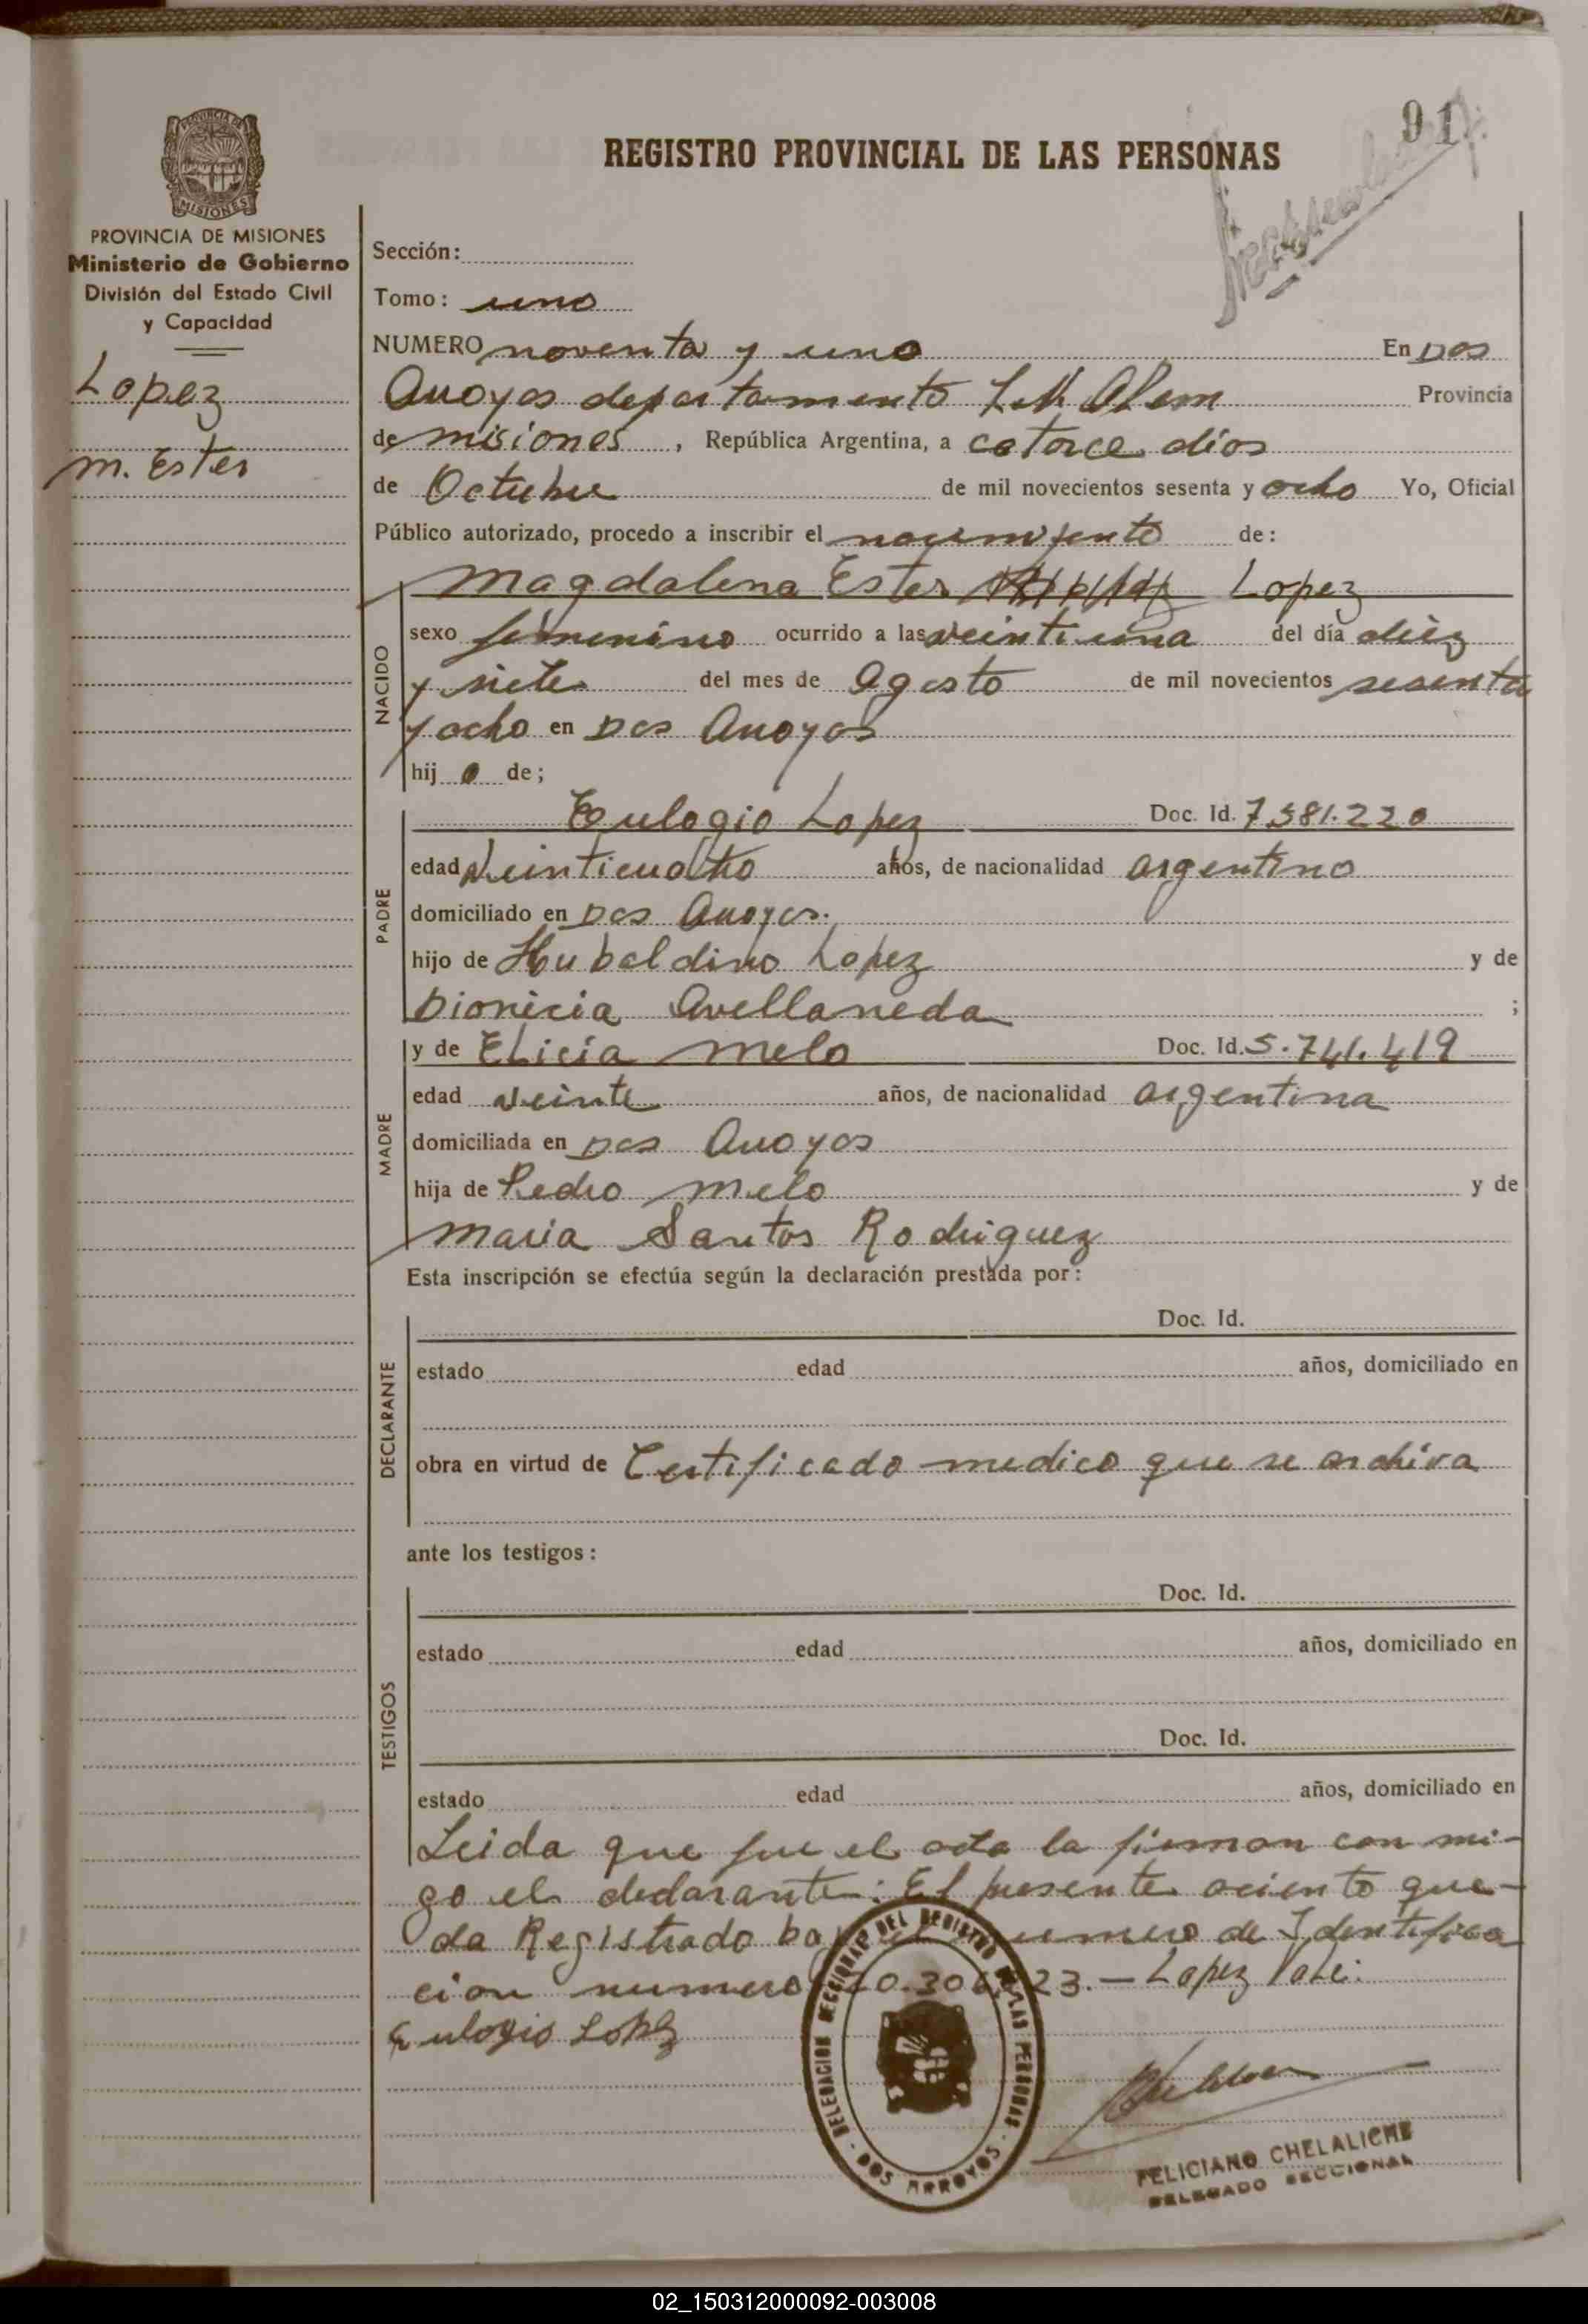 91
REGISTRO PROVINCIAL DE LAS PERSONAS
PROVINCIA DE MISIONES
PROVINCIA DE MISIONES
Ministerio de Gobierno
División del Estado Civil
y Capacidad
Lopez
M. Ester
Sección:
Tomo: uno
NUMERO noventa y uno En Dos
Arroyos departamento L.N. Alem Provincia
de misiones, República Argentina, a catorce dios
de Octubre de mil novecientos sesenta y ocho Yo, Oficial
Público autorizado, procedo a inscribir el de:
Magdalena Ester Lopez
NACIDO
sexo femenino ocurrido a las veintiuna del día diez
y siete del mes de Agosto de mil novecientos sesenta
y ocho en Dos Arroyos
hij o de;
PADRE
Eulogio Lopez Doc. Id. 7.581.220
edad veinticuatro años, de nacionalidad argentino
domiciliado en Dos Arroyos.
hijo de Hubaldino Lopez y de
Dionicia Avellaneda ;
MADRE
y de Elicia Melo Doc. Id. 5.741.419
edad veinte años, de nacionalidad argentina
domiciliada en Dos Arroyos
hija de Pedro Melo y de
Maria Santos Rodriguez
Esta inscripción se efectúa según la declaración prestada por:
DECLARANTE
Doc. Id.
estado edad años, domiciliado en
obra en virtud de Certificado medico que se archiva
ante los testigos:
TESTIGOS
Doc. Id.
estado edad años, domiciliado en
Doc. Id.
estado edad años, domiciliado en
Leida que fue el acta la firman con mi-
go el declarante: El presente aciento que-
da Registrado numero de Identifica
cion numero 23.— Lopez Vale:
Eulogio Lopez
DELEGACION SECCIONAL DEL REGISTRO DE LAS PERSONAS - DOS ARROYOS -
FELICIANO CHELALICHE
DELEGADO SECCIONAL
02_150312000092-003008